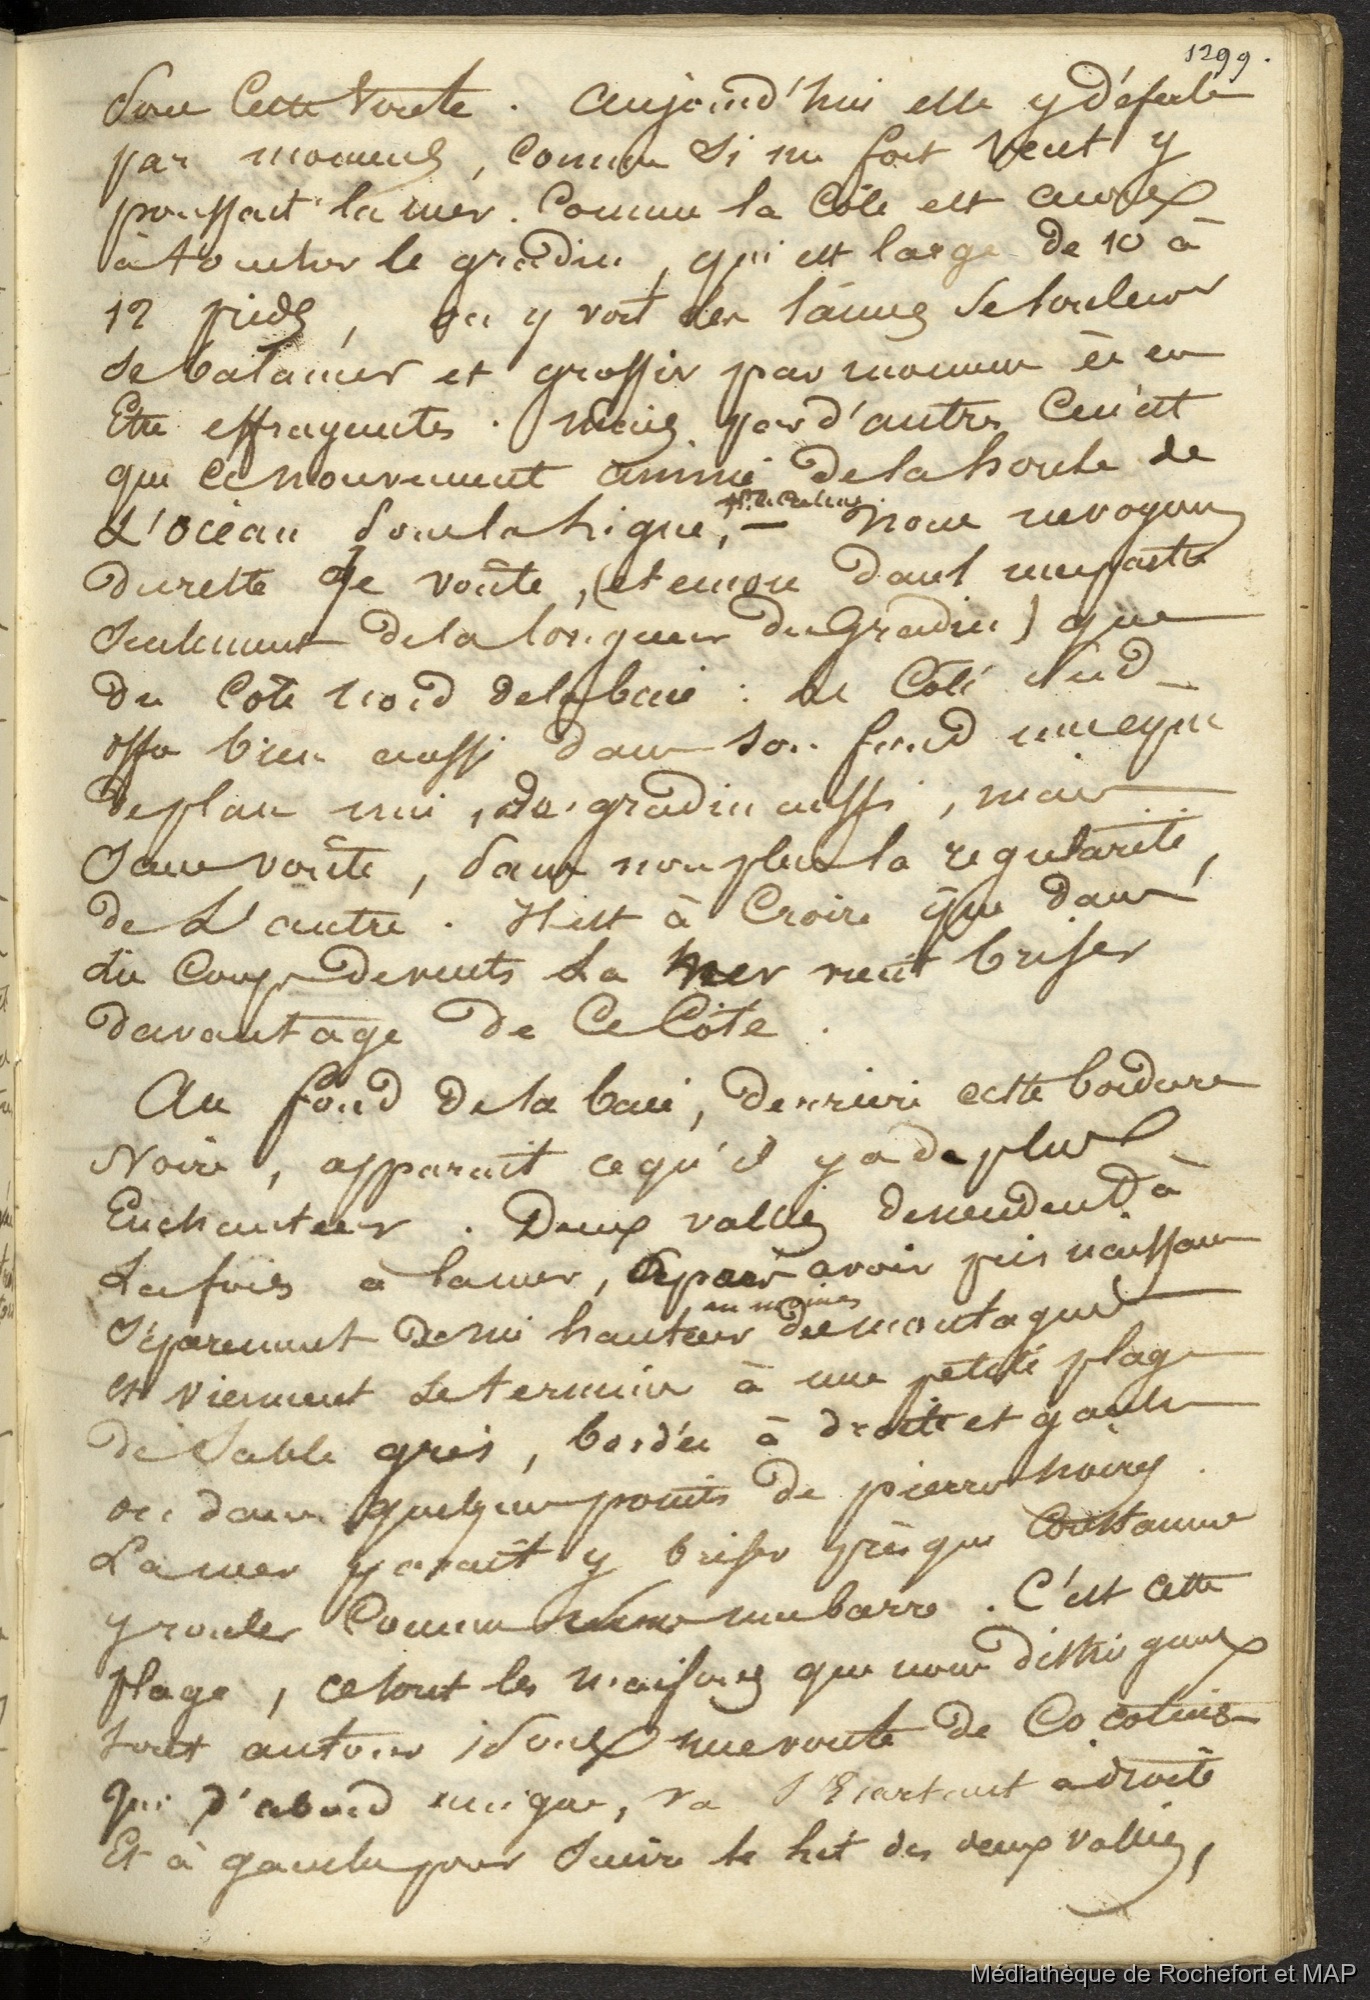 1299.
sous Cette voute. Aujourd'hui elle y déferle
par moments, Comme Si un fort Vent y
poussait la mer. Comme la Côte est accore
à toucher le gradin, qui est large de 10 à
12 pieds, on y voit les lâmes Se soulever
se balancer et grossir par moment à en
Etre effrayantes. Mais par d'autres Ce n'est
que ce mouvement animé de la houle de
L'océan sous la ligne, — Nous ne voyons
du reste de voûte, (et encore dans une partie
Seulement de la longueur du Gradin) que
du Coté nord de la baie : le Côté Sud
offre bien aussi dans son fond une espèce
de plan uni, de gradin aussi, mais
Sans voûte, Sans non plus la regularité,
de L'autre. Il est à Croire que dans
du Coups de vents La mer vient briser
davantage de Ce Côté.
Au fond de la baie, derriere cette bordure
Noire, apparait ce qu'il y a de plus
Enchanteur. Deux vallées descendent à
La fois à la mer, après avoir pris naissance
au moins
Séparement de mi hauteur des montagnes
et viennent Se terminer à une petite plage
de Sable gris, bordée à droite et gauche
ou dans quelques points de pierres noires.
La mer parait y briser presque Constamment
y rouler Comme une barre. C'est cette
plage, ce sont les maisons que nous distinguons
tout autour sous une voute de Cocotiers
qui d'abord unique, va S'Ecartant à droite
Et à gauche pour Suivre le lit des deux vallées,
Médiathèque de Rochefort et MAP